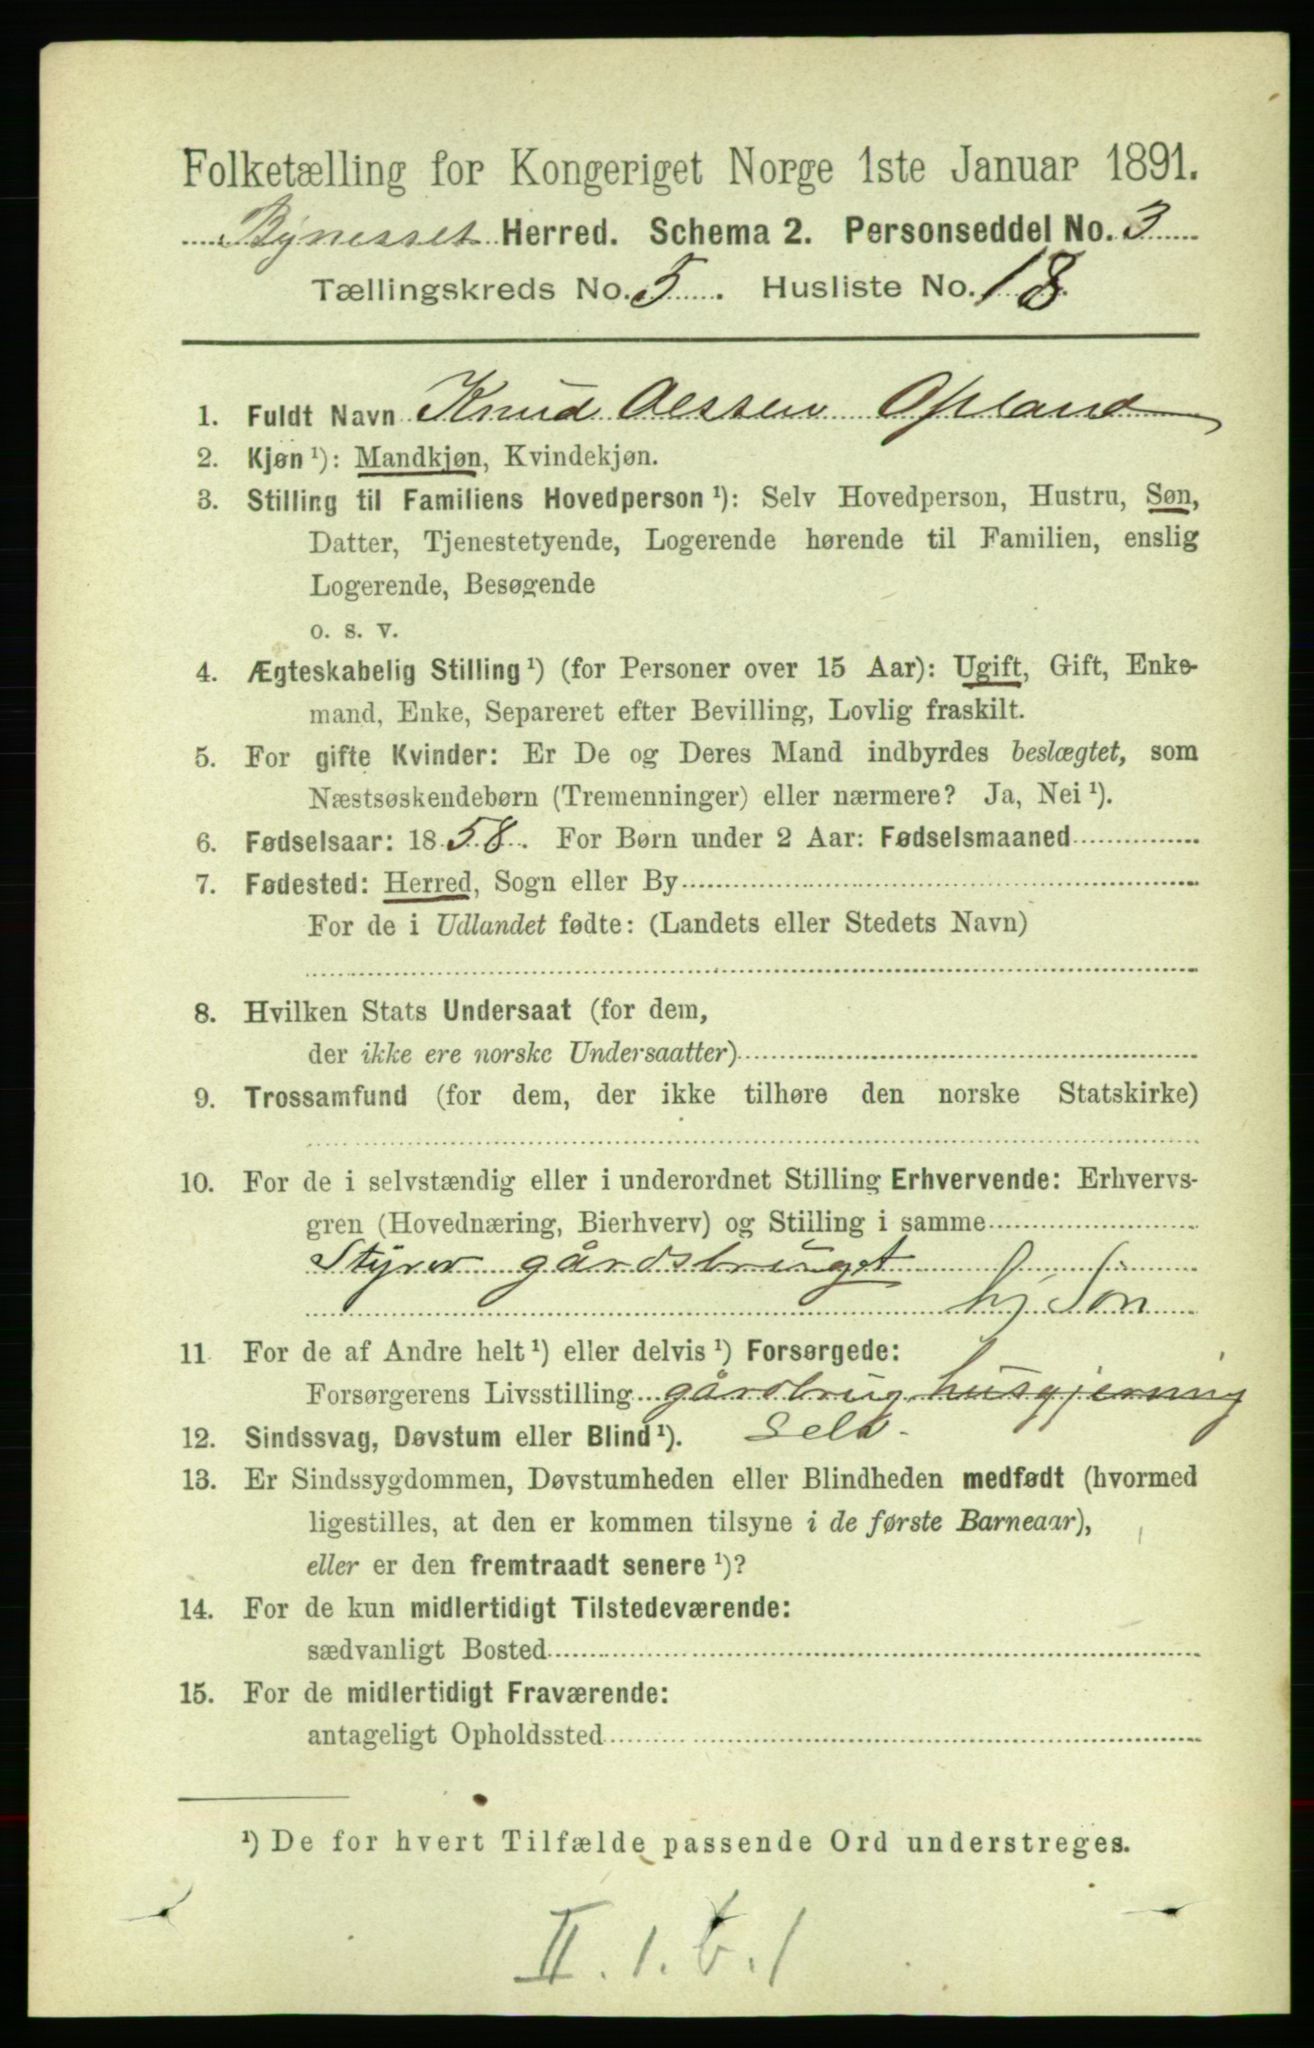 Folketælling for Kongeriget Norge 1ste Januar 1891.
Bynesset Herred. Schema 2. Personseddel No. 3
Tællingskreds No. 5. Husliste No. 18.
1. Fuldt Navn Knud Olssen Opland
2. Kjøn ¹): Mandkjøn, Kvindekjøn.
3. Stilling til Familiens Hovedperson ¹): Selv Hovedperson, Hustru, Søn,
Datter, Tjenestetyende, Logerende hørende til Familien, enslig
Logerende, Besøgende
o. s. v.
4. Ægteskabelig Stilling ¹) (for Personer over 15 Aar): Ugift, Gift, Enke-
mand, Enke, Separeret efter Bevilling, Lovlig fraskilt.
5. For gifte Kvinder: Er De og Deres Mand indbyrdes beslægtet, som
Næstsøskendebørn (Tremenninger) eller nærmere? Ja, Nei ¹).
6. Fødselsaar: 1858. For Børn under 2 Aar: Fødselsmaaned
7. Fødested: Herred, Sogn eller By
For de i Udlandet fødte: (Landets eller Stedets Navn)
8. Hvilken Stats Undersaat (for dem,
der ikke ere norske Undersaatter)
9. Trossamfund (for dem, der ikke tilhøre den norske Statskirke)
10. For de i selvstændig eller i underordnet Stilling Erhvervende: Erhvervs-
gren (Hovednæring, Bierhverv) og Stilling i samme
Styrer gårdsbruget
hj. Søn
11 For de af Andre helt ¹) eller delvis ¹) Forsørgede:
Forsørgerens Livsstilling gårdbrug husgjerning
12. Sindssvag, Døvstum eller Blind ¹). Selv.
13. Er Sindssygdommen, Døvstumheden eller Blindheden medfødt (hvormed
ligestilles, at den er kommen tilsyne i de første Barneaar),
eller er den fremtraadt senere ¹)?
14. For de kun midlertidigt Tilstedeværende:
sædvanligt Bosted
15. For de midlertidigt Fraværende:
antageligt Opholdssted
¹) De for hvert Tilfælde passende Ord understreges.
II. 1. b. 1